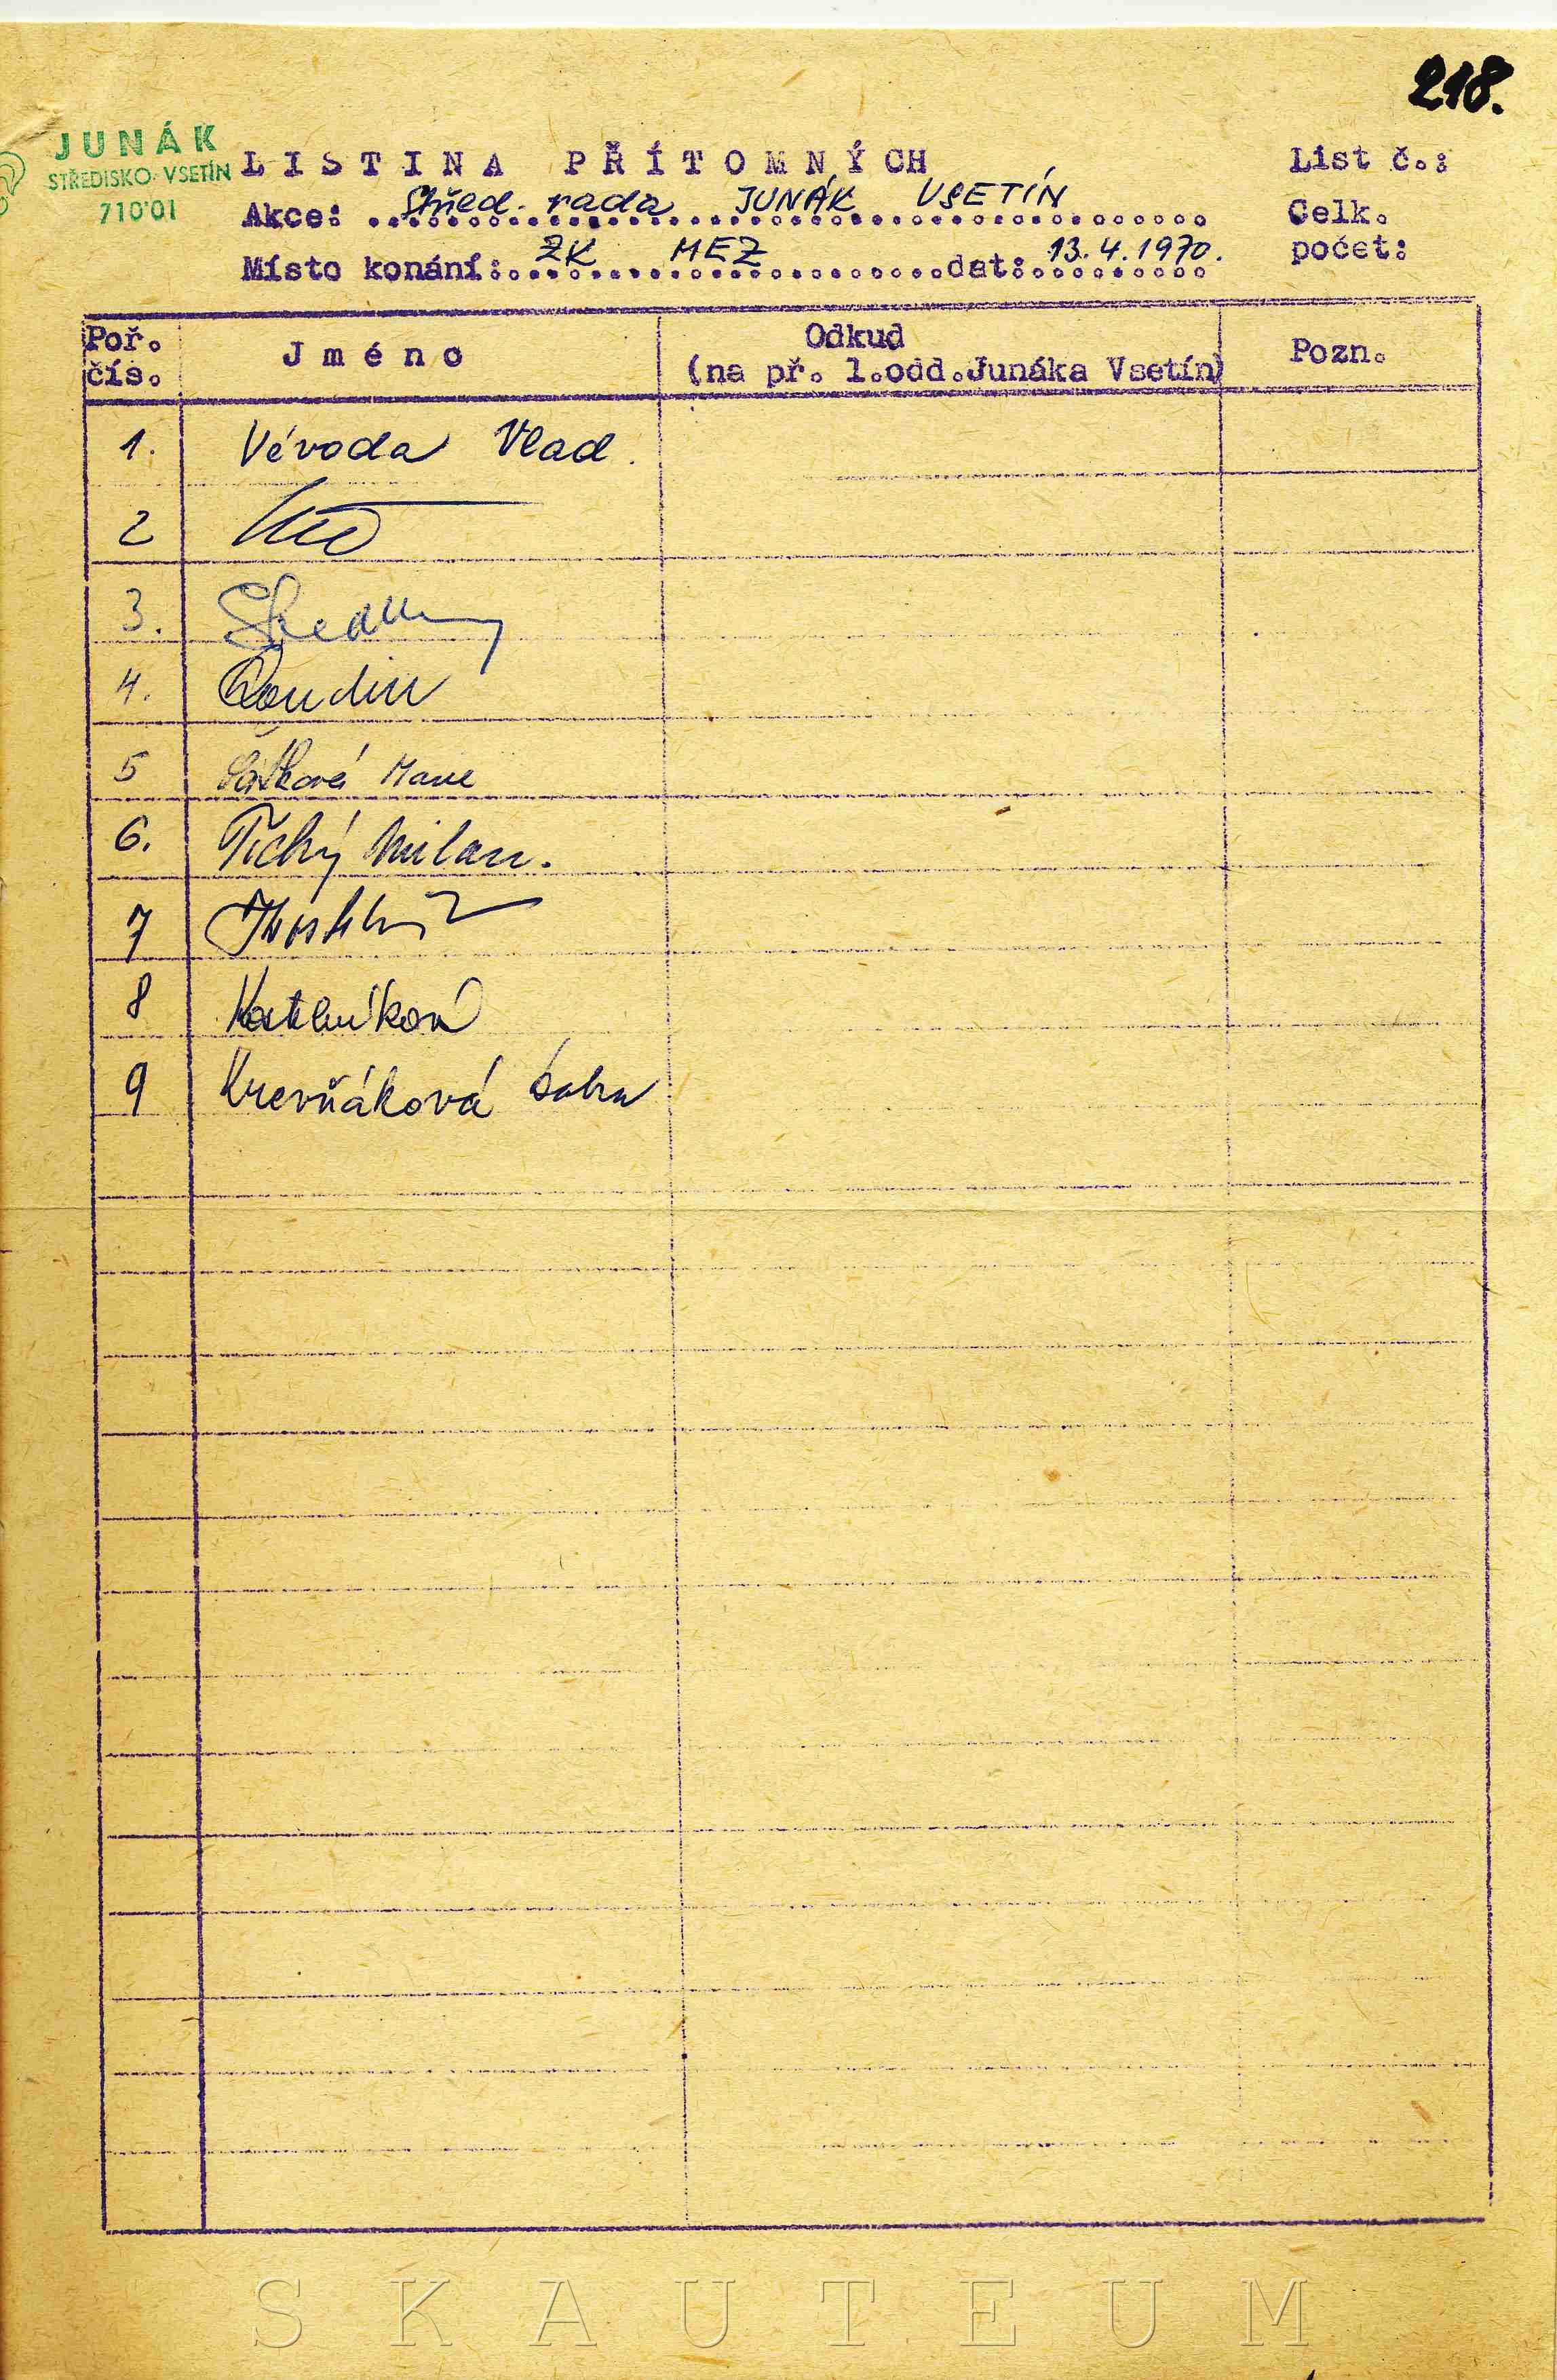 218.
JUNÁK
STŘEDISKO VSETÍN
710 01
LISTINA PŘÍTOMNÝCH
List č.:
Akce: Střed. rada JUNÁK VSETÍN
Celk.
počet:
Místo konání: ZK MEZ dat: 13.4.1970.
Poř.
čís.
Jméno
Odkud
(na př. 1.odd.Junáka Vsetín)
Pozn.
1. Vévoda Vlad.
2
3.
4.
5
6. Tichý Milan.
7
8
9
SKAUTEUM